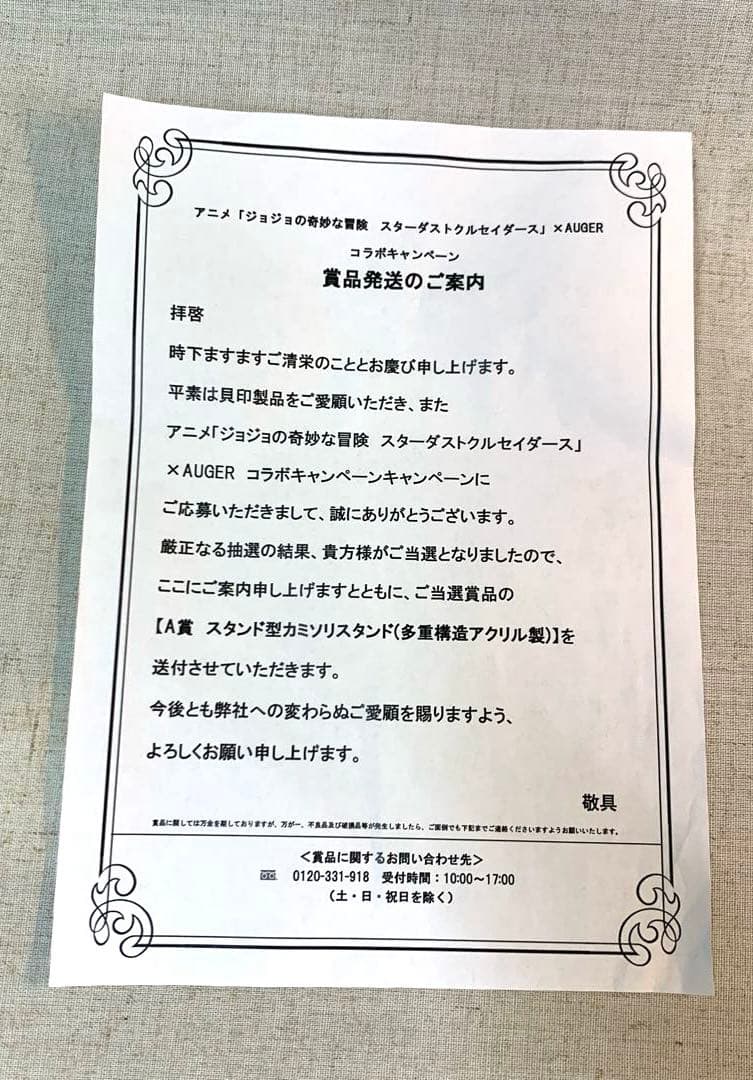 アニメ「ジョジョの奇妙な冒険　スターダストクルセイダース」×AUGER
コラボキャンペーン
賞品発送のご案内
拝啓
時下ますますご清栄のこととお慶び申し上げます。
平素は貝印製品をご愛顧いただき、また
アニメ「ジョジョの奇妙な冒険　スターダストクルセイダース」
×AUGER　コラボキャンペーンキャンペーンに
ご応募いただきまして、誠にありがとうございます。
厳正なる抽選の結果、貴方様がご当選となりましたので、
ここにご案内申し上げますとともに、ご当選賞品の
【A賞　スタンド型カミソリスタンド(多重構造アクリル製)】を
送付させていただきます。
今後とも弊社への変わらぬご愛顧を賜りますよう、
よろしくお願い申し上げます。
敬具
賞品に関しては万全を期しておりますが、万が一、不良品及び破損品等が発生しましたら、ご面倒でも下記までご連絡くださいますようお願いいたします。
＜賞品に関するお問い合わせ先＞
0120-331-918　受付時間：10:00～17:00
（土・日・祝日を除く）